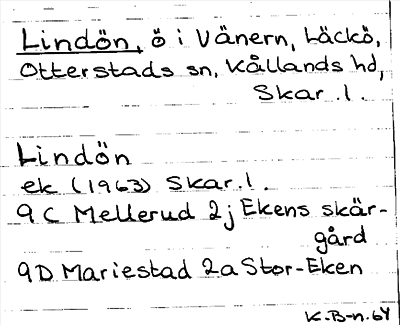 Lindön, ö i Vänern, Läckö,
Otterstads sn, Kållands hd,
Skar. l.
Lindön
ek (1963) Skar. l.
9 C Mellerud 2 j Ekens skär-
gård
9 D Mariestad 2 a Stor-Eken
K. B-n. 64